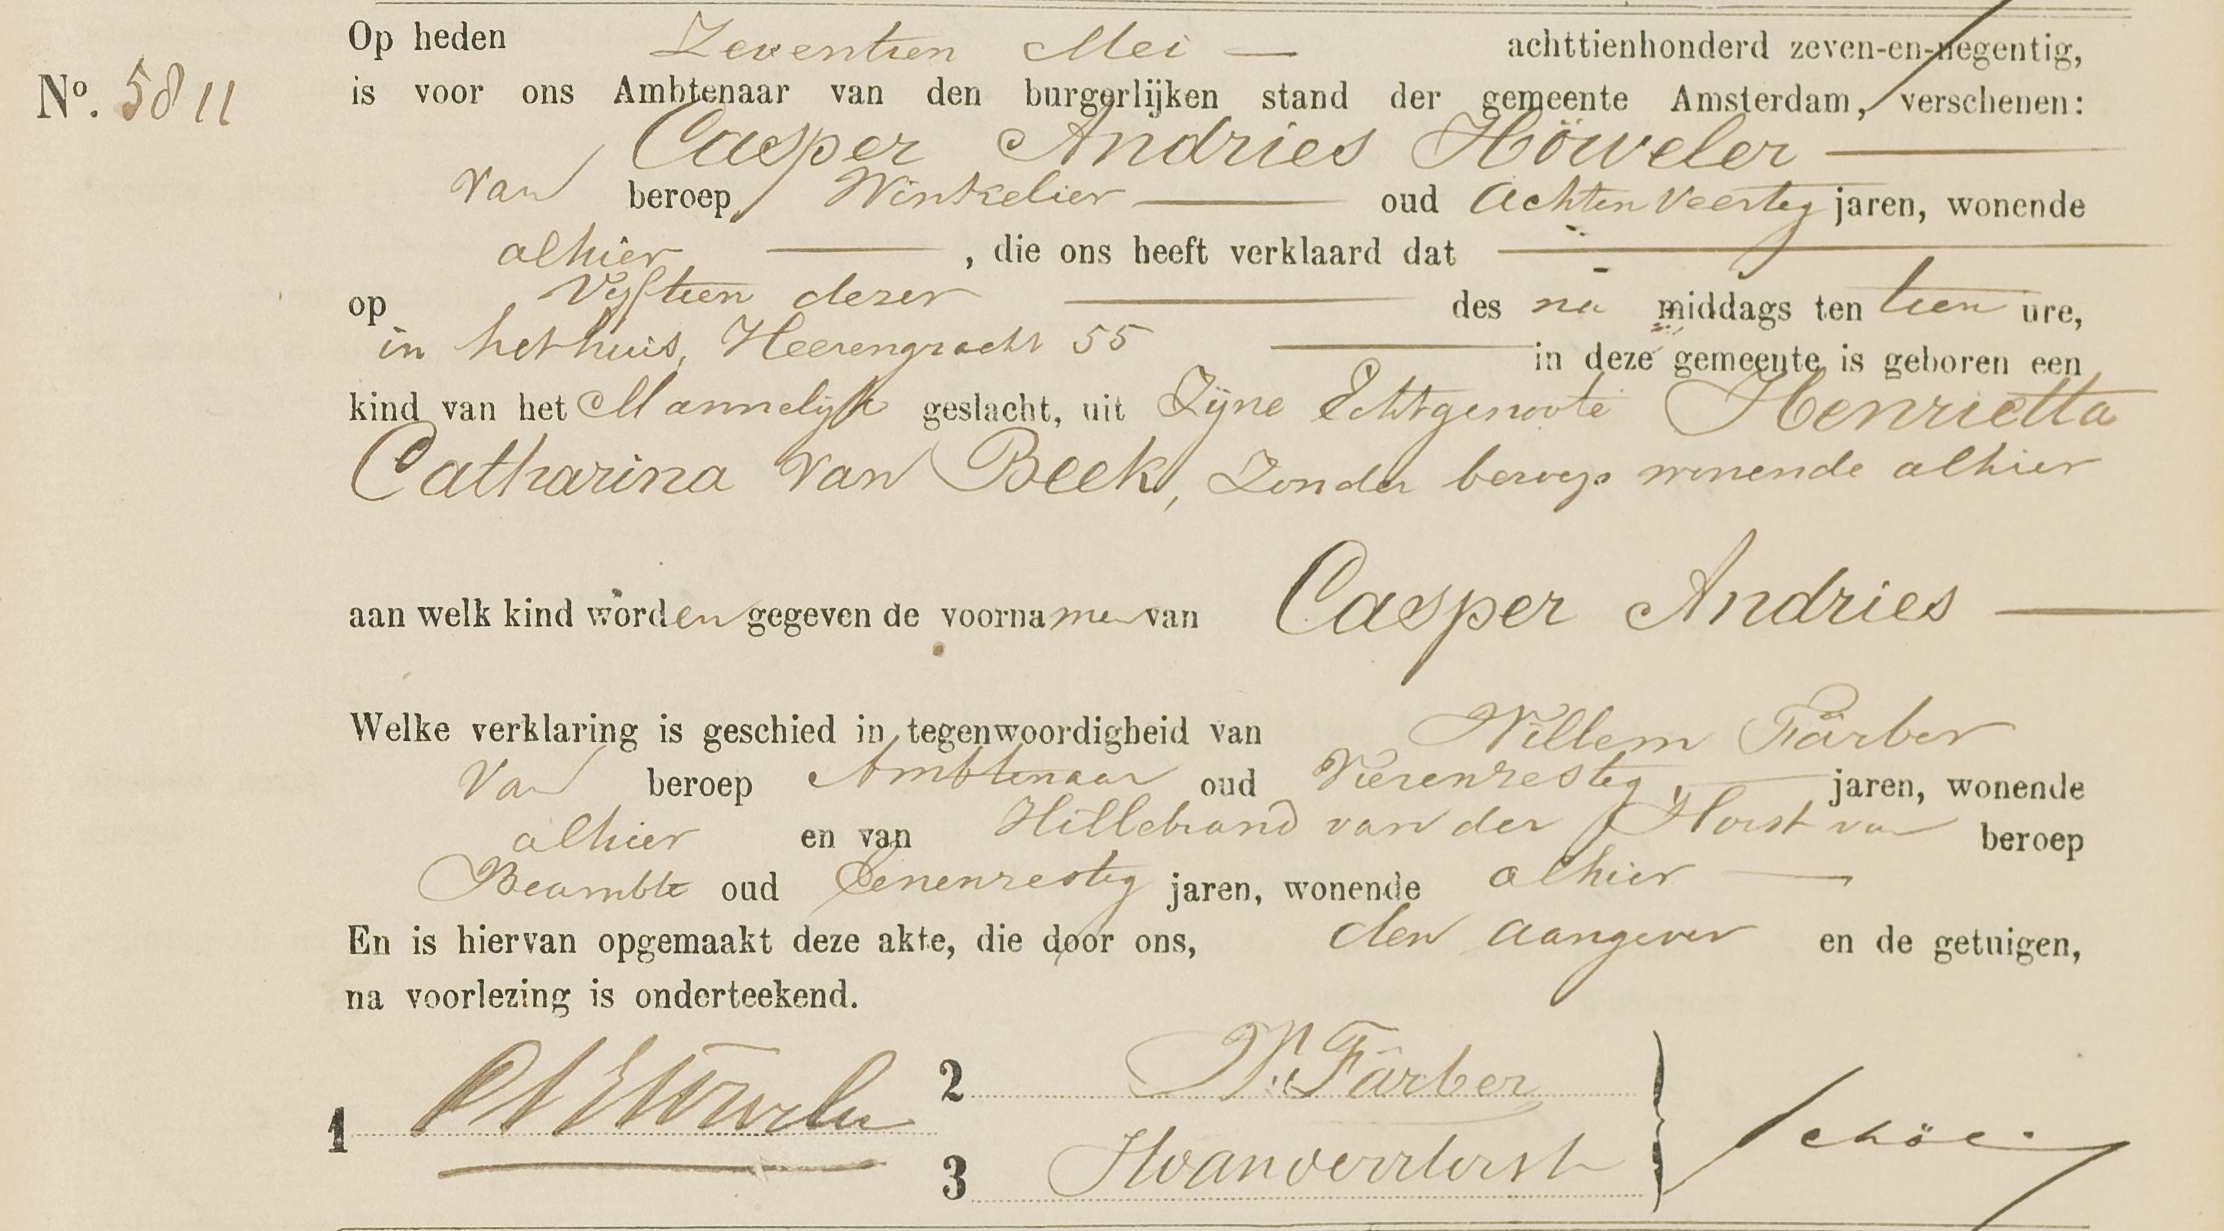 Op heden Zeventien Mei — achttienhonderd zeven-en-negentig,
No. 5811
is voor ons Ambtenaar van den burgerlijken stand der gemeente Amsterdam, verschenen:
Casper Andries Höweler —
van beroep Winkelier — oud Achtenveertig jaren, wonende
alhier — , die ons heeft verklaard dat —
op Vijftien dezer — des na middags ten tien ure,
in het huis, Heerengracht 55 — in deze gemeente is geboren een
kind van het Mannelijk geslacht, uit Zijne Echtgenoote Henrietta
Catharina van Beek, Zonder beroep wonende alhier
aan welk kind worden gegeven de voornamen van Casper Andries —
Welke verklaring is geschied in tegenwoordigheid van Willem Färber
van beroep Ambtenaar oud Vierenzestig, — jaren, wonende
alhier en van Hillebrand van der Horst van beroep
Beambte oud Eenenzestig jaren, wonende alhier —
En is hiervan opgemaakt deze akte, die door ons, den aangever en de getuigen,
na voorlezing is onderteekend.
1 CAHöweler
2 W. Färber
3 HvanderHorst